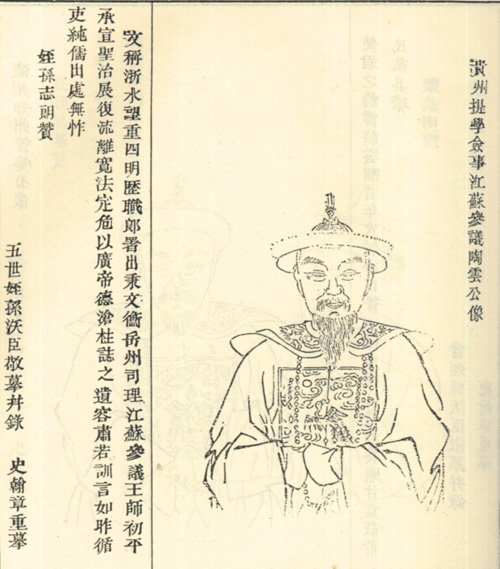 貴州提學僉事江蘇參議陶雲公像
文稱浙水望重四明歷職郎署出秉文衡岳州司理江蘇參議王師初平
承宣聖治展復流離寬法定危以廣帝德滄桂誌之遺容肅若訓言如昨循
吏純儒出處無怍
姪孫志朗贊
五世姪孫沃臣敬摹并錄
史翰章重摹